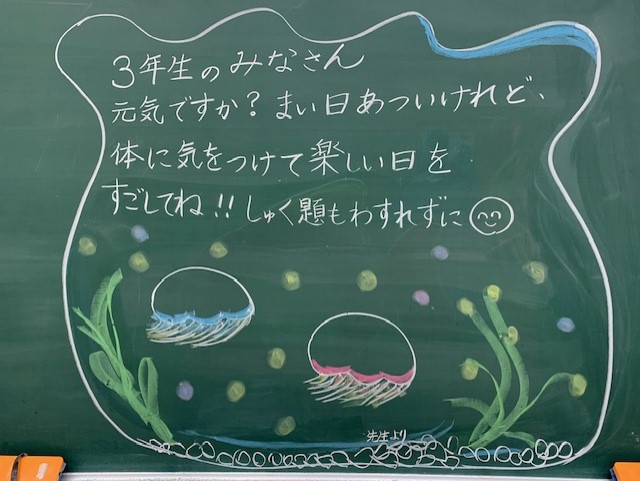 3年生のみなさん
元気ですか？まい日あついけれど、
体に気をつけて楽しい日を
すごしてね!!しゅく題もわすれずに
先生より